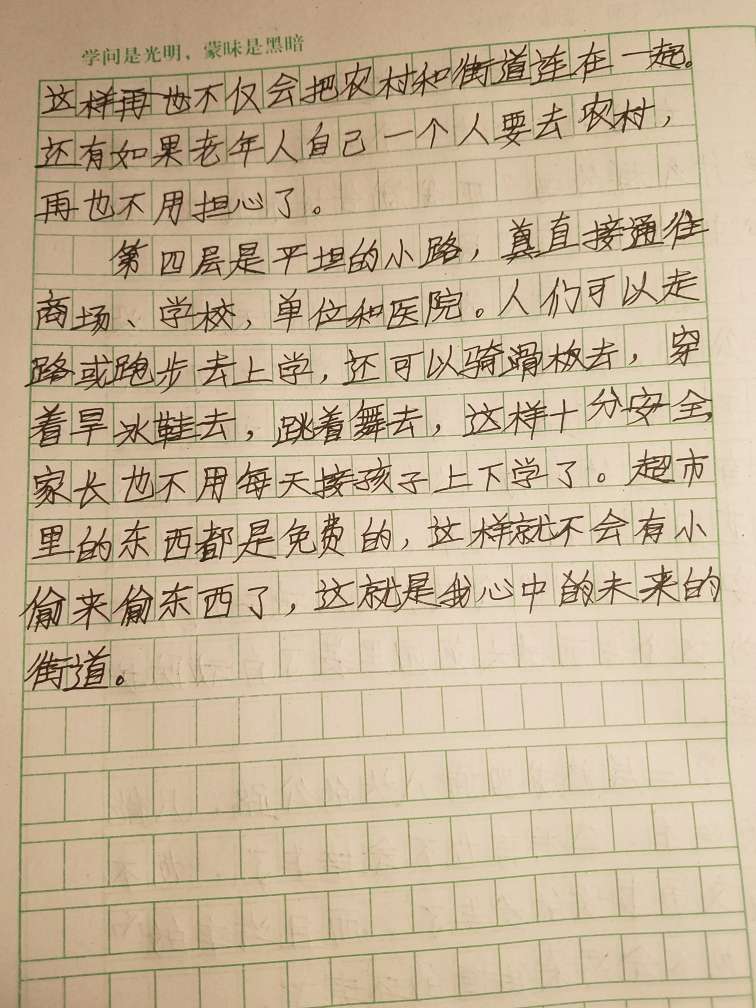 学问是光明，蒙昧是黑暗
这样再也不仅会把农村和街道连在一起。
还有如果老年人自己一个人要去农村，
再也不用担心了。
第四层是平坦的小路，真直接通往
商场、学校，单位和医院。人们可以走
路或跑步去上学，还可以骑滑板去，穿
着旱冰鞋去，跳着舞去，这样十分安全，
家长也不用每天接孩子上下学了。超市
里的东西都是免费的，这样就不会有小
偷来偷东西了，这就是我心中的未来的
街道。